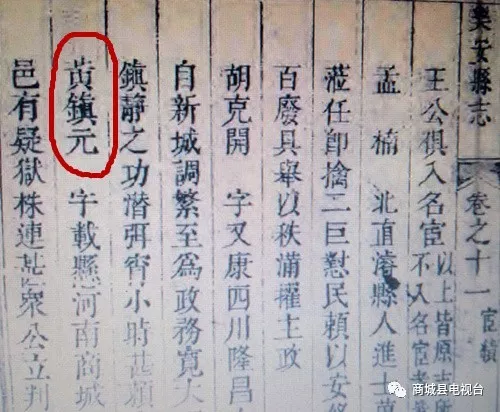 樂安縣志 卷之十一 宦績
王公俱入名宦
以上皆原志
不入名宦者
孟楠 北直濬縣人進士
蒞任卽擒二巨憝民賴以安
百廢具舉以秩滿擢主政
胡克開 字又康四川隆昌
自新城調繁至爲政務寬大
鎮靜之功潛弭宵小時甚賴
黃鎮元 字載懸河南商城
邑有疑獄株連甚衆公立判
商城县电视台